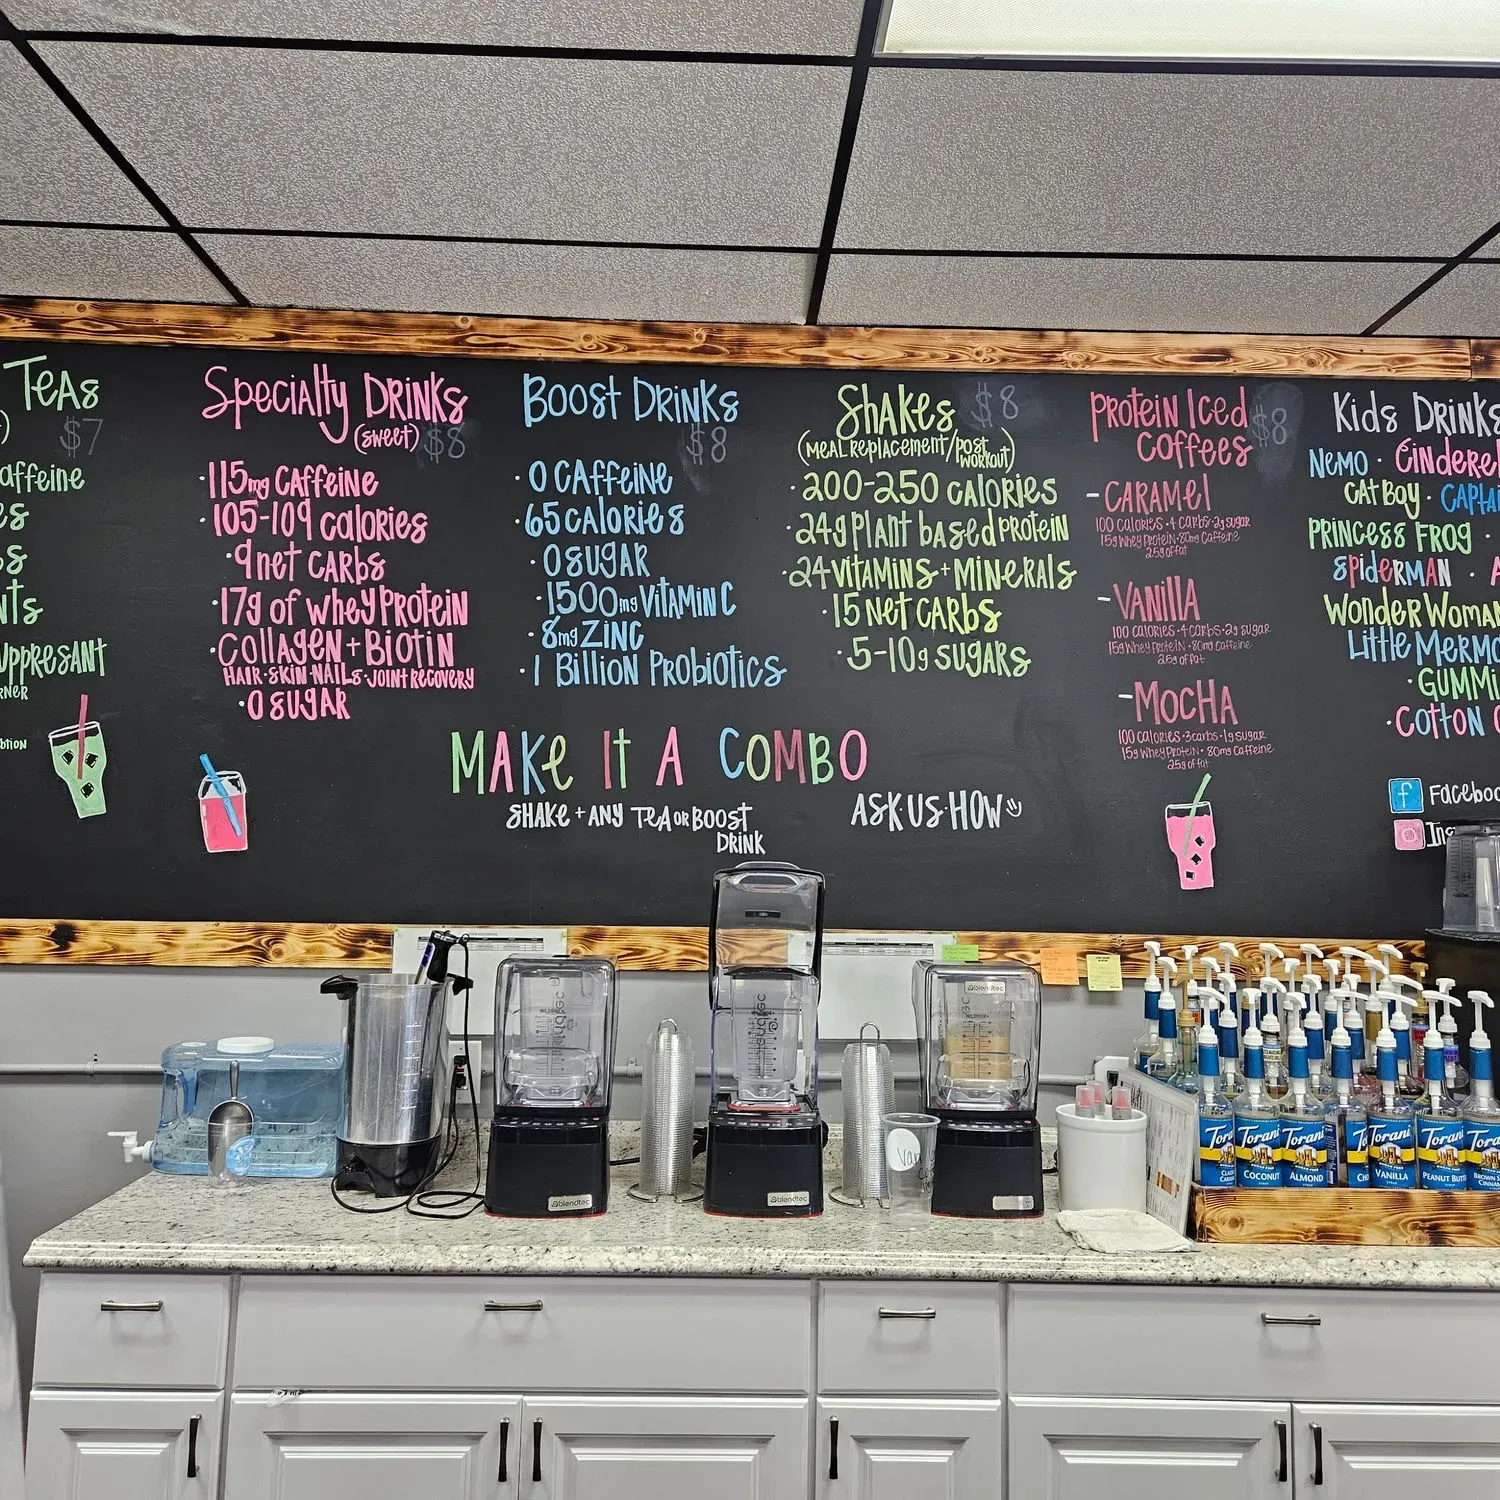 TEAS
$7
affeine
UPPRESANT
Specialty DRINKS
(sweet) $8
·115mg CAFFEINE
·105-109 CALORIES
·9 net CARBS
·17g of whey PROTEIN
·COLLAGEN + BIOTIN
HAIR·SKIN·NAILS·JOINT RECOVERY
·0 SUGAR
BOOST DRINKS
$8
·0 CAFFEINE
·65 CALORIES
·0 SUGAR
·1500mg VITAMIN C
·8mg ZINC
·1 Billion PROBIOTICS
SHAKES $8
(MEAL REPLACEMENT/POST WORKOUT)
·200-250 CALORIES
·24g PLANT based PROTEIN
·24 VITAMINS + MINERALS
·15 NET CARBS
·5-10g SUGARS
MAKE IT A COMBO
SHAKE + ANY TEA OR BOOST
DRINK
ASK US HOW
PROTEIN ICED
COFFEES $8
- CARAMEL
100 CALORIES·4 CARBS·2g SUGAR
15g WHEY PROTEIN·80mg CAFFEINE
2.5g OF FAT
- VANILLA
100 CALORIES·4 CARBS·2g SUGAR
15g WHEY PROTEIN·80mg CAFFEINE
2.5g OF FAT
- MOCHA
100 CALORIES·3 CARBS·1g SUGAR
15g WHEY PROTEIN·80mg CAFFEINE
2.5g OF FAT
KIDS DRINKS
NEMO · Cinderel
CAT BOY · CAPTAI
PRINCESS FROG ·
SPIDERMAN · A
WONDER WOMAN
LITTLE MERMA
·GUMMI
·COTTON C
f FACEBOO
INS
blendtec
blendtec
blendtec
blendtec
Torani
Torani
Torani
Torani
Torani
Torani
COCONUT
ALMOND
VANILLA
PEANUT BUTT
BROWN S